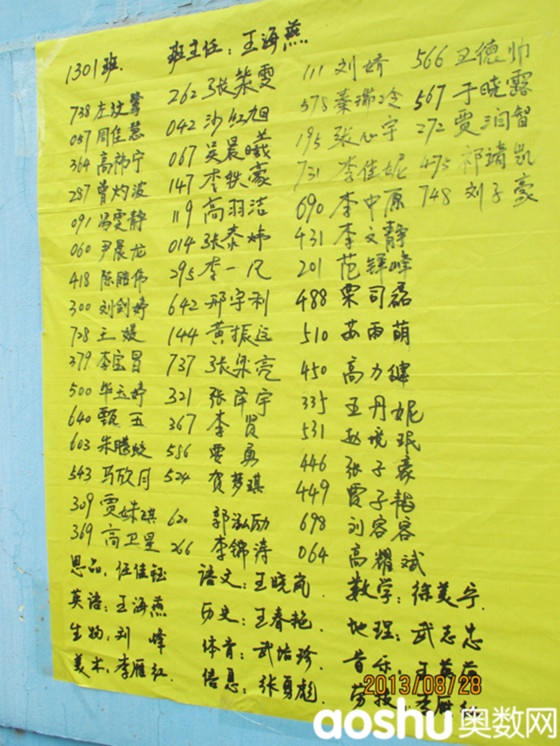 1301班. 班主任:王海燕
738 左
262 张荣雯
111 刘娇
566 王德帅
057 周佳慧
042 沙红旭
575 秦
567 于晓露
364 高伟宁
067 吴晨曦
195 张心宇
272 贾润智
287 曾灼波
147 李轶豪
731 李佳妮
475 祁靖凯
091 冯雯静
119 高羽洁
690 李中原
748 刘子豪
060 尹晨龙
014 张泰
431 李文静
418 陈鹏伟
295 李一凡
201 范
300 刘剑婷
642 邢宇利
488 栗司磊
728 王媛
144 黄振远
510 苏雨萌
379 李宝昌
737 张梁亮
450 高力
500 毕玉婷
321 张泽宇
335 王丹妮
640 甄五
367 李贤
531 赵
603 朱腾皎
586 贾勇
446 张子豪
543 马欣月
524 贺梦琪
449 贾子
309 贾姝琪
620 郭泓励
698 刘容容
369 高卫星
266 李锦涛
064 高耀斌
思品:任佳钰 语文:王晓岚 数学:徐美宁.
英语:王海燕 历史:王春艳. 地理:武志忠
生物:刘峰 体育:武培珍 音乐:王
美术:李雁红. 信息:张勇彪. 劳技:李
2013/08/28
aoshu奥数网